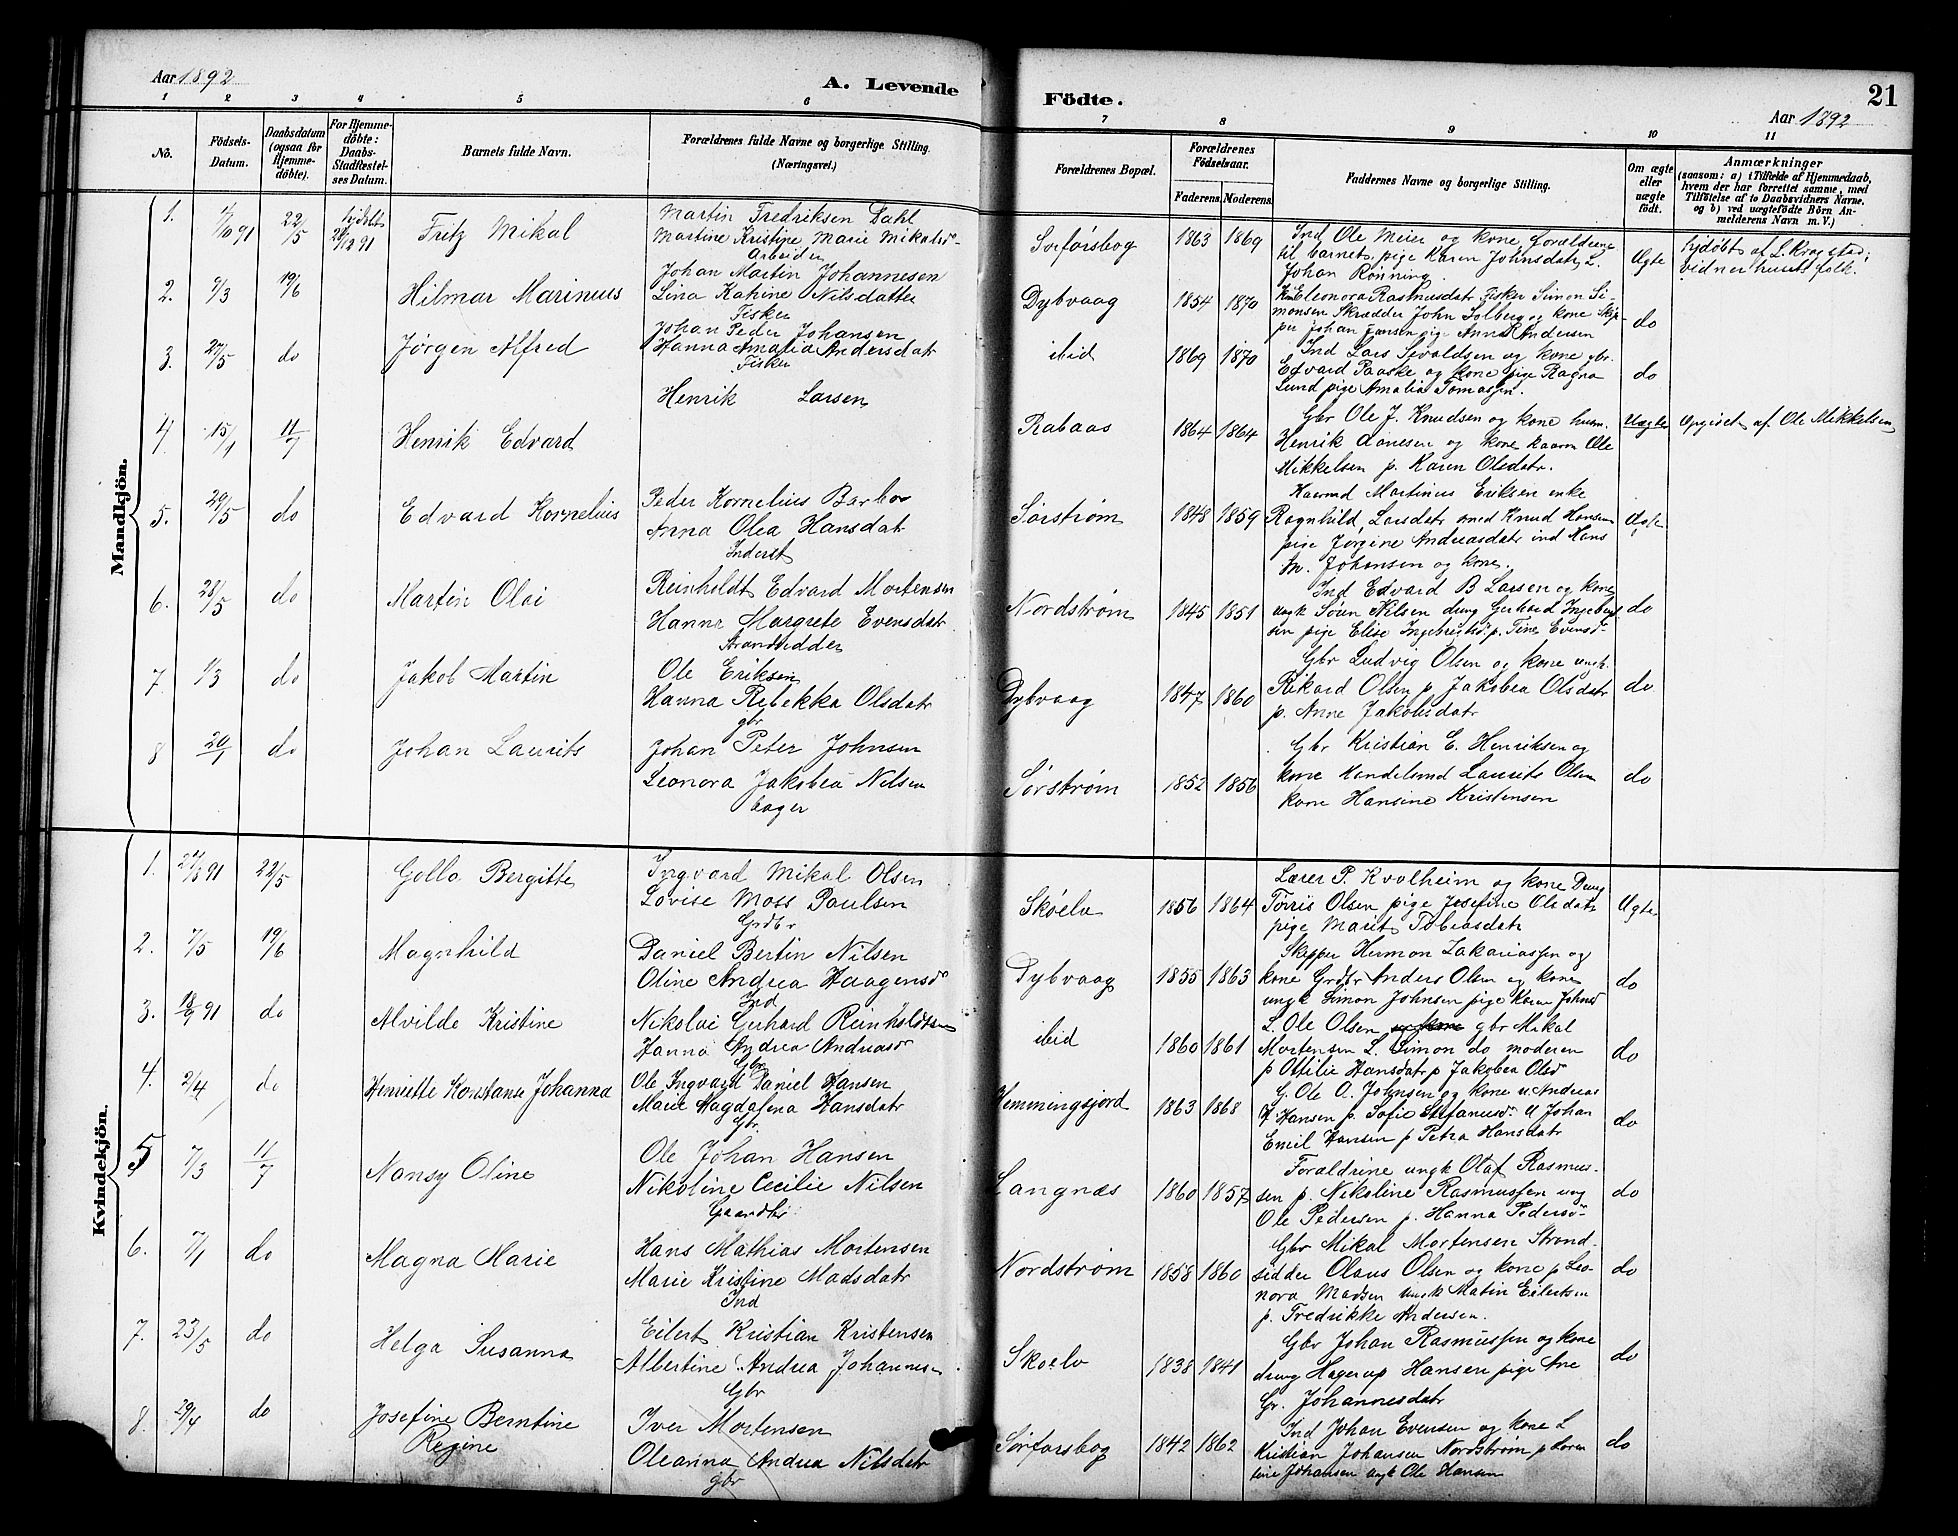 Aar 1892
A. Levende Födte.
21
Aar 1892
1 2 3 4 5 6 7 8 9 10 11
No.
Födsels-Datum.
Daabsdatum (ogsaa for Hjemme-döbte).
For Hjemme-döbte: Daabs-Stadfæstel-ses Datum.
Barnets fulde Navn.
Forældrenes fulde Navne og borgerlige Stilling.
(Næringsvei.)
Forældrenes Bopæl.
Forældrenes Födselsaar.
Faderens. Moderens.
Faddernes Navne og borgerlige Stilling.
Om ægte eller uægte födt.
Anmærkninger
(saasom: a) i Tilfælde af Hjemmedaab, hvem der har forrettet samme, med Tilföielse af to Daabsvidners Navne, og b) ved uægtefödte Börn An-melderens Navn m. V.)
Mandkjön.
1. 4/10 91 22/5 Fritz Mikal
Martin Fredriksen Dahl
Martine Kristine Marie Mikalsd
Arbeider
Sørforsbog 1863 1869
Ind Ole Meier og kone, forældrene
til barnet, pige Karen Johnsdatr, L.
Johan Rønning.
Ægte
hjdøbt af L. Kragstad;
vidner husets folk.
2. 9/3 19/6 Hilmar Marinus
Johan Martin Johannesen
Lina Katrine Nilsdatter
Fisker
Dybvaag 1854 1870
K Eleonora Rasmusdatr Fisker Simon Si-
monsen Skrædder John Solberg og kone Skip-
per Johan Jansen pige Anna R Andersen
do
3. 27/5 do Jørgen Alfred
Johan Peder Johansen
Hanna Amalia Andersdatr
Fisker
ibid 1869 1870
Ind Lars Sivaldsen og kone gbr.
Edvard Paaske og kone pige Ragna
Lund pige Amalia Tomassen.
do
4. 15/1 11/7 Henrik Edvard
Henrik Larsen
Rabaas 1864 1864
Gbr Ole J. Knudsen og kone husm.
Henrik Aanesen og kone kaarm Ole
Mikkelsen p. Karen Olsdatr.
Uægte
Opgivet af Ole Mikkelsen
5. 29/5 do Edvard Kornelius
Peder Kornelius Barbo
Anna Olea Hansdatr
Inderst
Sørstrøm 1848 1859
Kaarmd Martinus Eriksen enke
Ragnhild Larsdatr smed Knud Hansen
pige Jørgine Andreasdatr ind Hans
M. Johansen og kone.
Ægte
6. 28/5 do Martin Olai
Reinholdt Edvard Mortensen
Hanna Margrete Evensdatr
Strandsidder
Nordstrøm 1845 1851
Ind Edvard B Larsen og kone
ungk Søren Nilsen dreng Gerhard Ingebrigt
sen pige Elise Ingebrigtsd. p. Tine Evensd
do
7. 1/3 do Jakob Martin
Ole Eriksen
Hanna Rebekka Olsdatr
gbr
Dybvaag 1847 1860
Gbr Ludvig Olsen og kone ungk.
Rikard Olsen p Jakobea Olsdatr
p. Anne Jakobsdatr
do
8 20/1 do Johan Laurits
Johan Peter Johnsen
Leonora Jakobea Nilsen
bager
Sørstrøm 1852 1856
Gbr Kristian E. Henriksen og
kone Handelsmd Laurits Olsen
kone Hansine Kristensen
do
Kvindekjön.
1. 22/5 Golla Bergitte
Ingvard Mikal Olsen
Lovise Moss Paulsen
Grdbr
Skøelv 1856 1864
Lærer P. Kvalheim og kone Dreng
Torris Olsen pige Josefine Olsdatr
pige Marit Tobiasdatr
Ægte
2. 7/5 19/6 Magnhild
Daniel Bertin Nilsen
Oline Andrea Haagensd
Ind
Dybvaag 1855 1863
Skipper Hermon Zakariassen og
kone Grdbr Anders Olsen og kone
ungk Simon Johnsen pige Karen Johnsd
do
3. 18/9 91 do Alvilde Kristine
Nikolai Gerhard Reinholdtsen
Hanna Andrea Andreasd
Gbr
ibid 1860 1861
L. Ole Olsen gbr Mikal
Mortensen L. Simon do moderen
p Ottilie Hansdatr p Jakobea Olsd
do
4. 2/4 do Henriette Konstanse Johanna
Ole Ingvard Daniel Hansen
Marie Magdalena Hansdatr
Gbr.
Hemmingsjord 1863 1868
G. Ole A. Johnsen og kone u. Andreas
H. Hansen p. Sofie Stefanusd U Johan
Emil Hansen p Petra Hansdatr
do
5 7/3 11/7 Nansy Oline
Ole Johan Hansen
Nikoline Cecilie Nilsen
Gaardbr
Langnæs 1860 1857
Forældrine ungk Olaf Rasmus-
sen p. Nikoline Rasmussen ung
Ole Pedersen p. Hanna Pedersd
do
6. 7/1 do Magna Marie
Hans Mathias Mortensen
Marie Kristine Madsdatr
Ind
Nordstrøm 1858 1860
Gbr Mikal Mortensen Strand-
sidder Olaus Olsen og kone p Leo-
nora Madsen ungk Matin Eilertsen
p. Fredrikke Andersen.
do
7. 23/5 do Helga Susanna
Eilert Kristian Kristensen
Albertine Andrea Johannesen
Gbr
Skøelv 1838 1841
Gbr Johan Rasmussen og kone
dreng Hagerup Hansen pige Ane
Gr. Johannesdatr
do
8 29/4 do Josefine Berntine
Regine
Iver Mortensen
Oleanna Andrea Nilsdatr
gbr
Sørforsbog 1842 1862
Ind Johan Evensen og kone L
Kristian Johansen Nordstrøm p Loren
tine Johansen ungk Ole Hansen
do